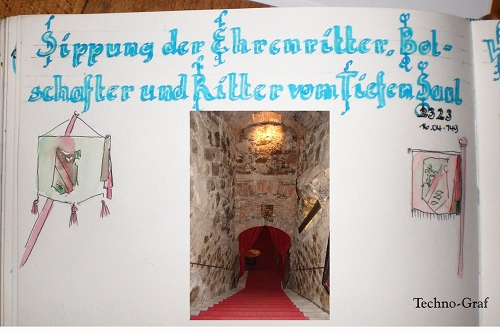 Sippung der Ehrenritter, Bot-
schafter und Ritter vom Tiefen Saal
2323
Techno-Graf